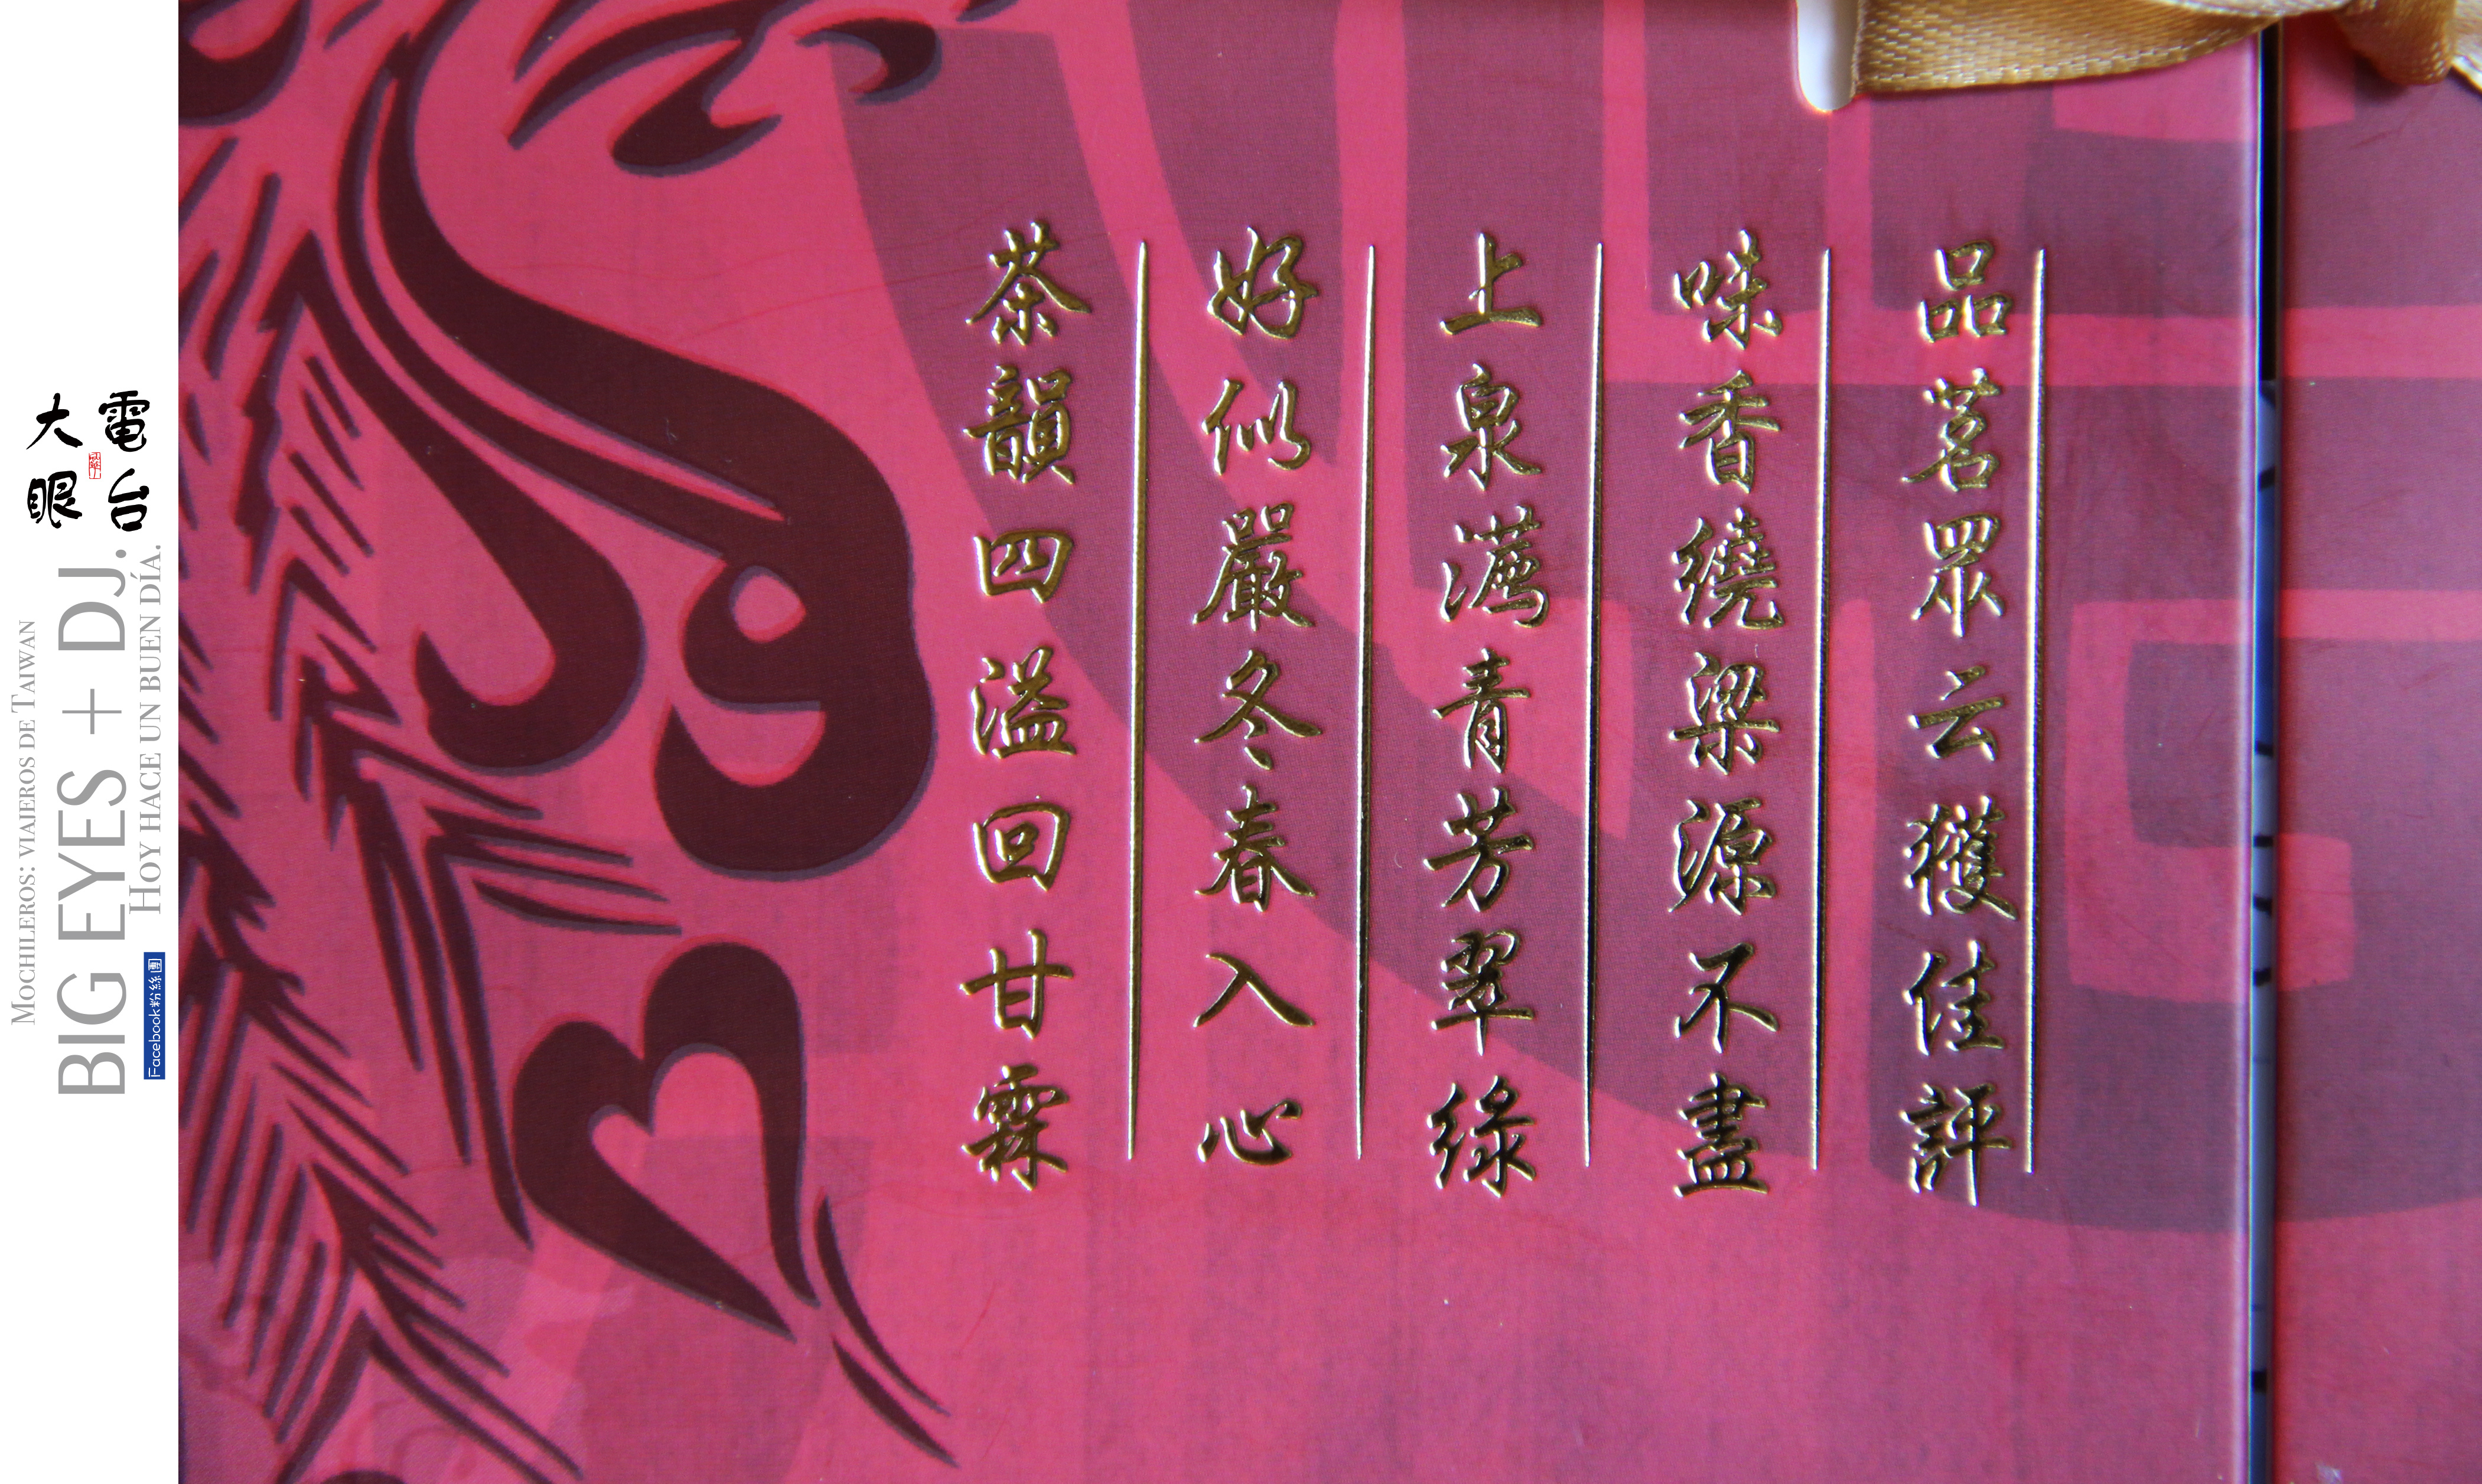 品茗眾云獲佳評
味香繞梁源不盡
上泉青芳翠綠
好似嚴冬春入心
茶韻四溢回甘霖
大眼電台
MOCHILEROS: VIAJEROS DE TAIWAN
BIG EYES + DJ.
HOY HACE UN BUEN DÍA.
Facebook粉絲團